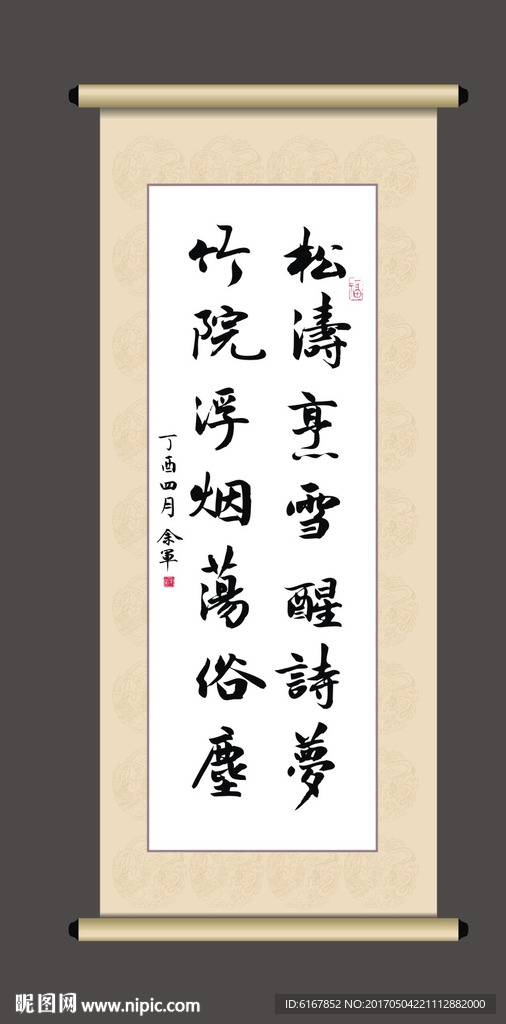 松濤烹雪醒詩夢
竹院浮烟蕩俗塵
丁酉四月 余軍
昵图网 www.nipic.com
ID:6167852 NO:20170504221112882000